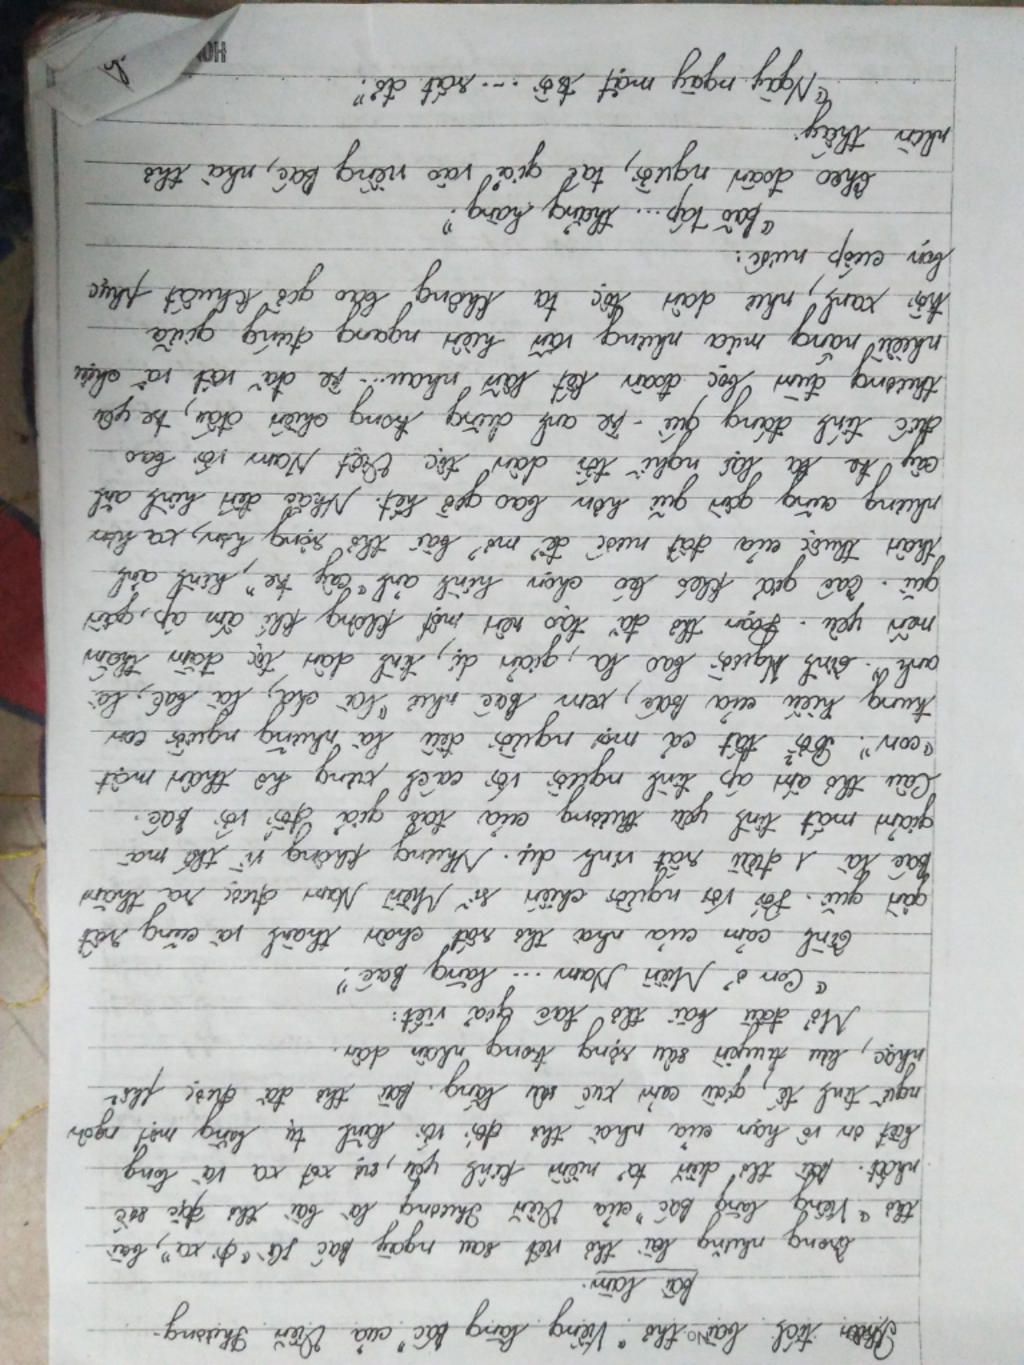 Phân tích bài thơ "Viếng lăng Bác" của Viễn Phương.
Bài làm.
Trong những bài thơ viết sau ngày Bác đã "đi xa", bài
thơ "Viếng lăng Bác" của Viễn Phương là bài thơ đặc sắc
nhất. Bài thơ diễn tả niềm kính yêu, sự xót xa và lòng
biết ơn vô hạn của nhà thơ đối với lãnh tụ bằng một ngôn
ngữ tinh tế, giàu cảm xúc sâu lắng. Bài thơ đã được phổ
nhạc, lưu truyền sâu rộng trong nhân dân.
Mở đầu bài thơ tác giả viết:
"Con ở Miền Nam ... hàng Bác"
Tình cảm của nhà thơ rất chân thành và cũng rất
gần gũi. Đối với người chiến sĩ Miền Nam được ra thăm
Bác là 1 điều rất vinh dự. Nhưng không vì thế mà
giảm mất tình yêu thương của tác giả đối với Bác.
Câu thơ ấm áp tình người với cách xưng hô thân mật
"con". Bởi tất cả mọi người đều là những người con
trung hiếu của Bác, xem Bác như "là cha, là bác, là
anh". Tình Người bao la, giản dị, tình dân tộc đằm thắm
mến yêu. Đoạn thơ đã tạo nên một không khí ấm áp, gần
gũi. Tác giả khéo léo chọn hình ảnh "cây tre", hình ảnh
thân thuộc của đất nước để mở bài thơ rộng hơn, xa hơn
nhưng cũng gần gũi hơn bao giờ hết. Nhắc đến hình ảnh
cây tre ta lại nghĩ tới dân tộc Việt Nam với bao
đức tính đáng quí - tre anh dũng trong chiến đấu, tre yêu
thương đùm bọc đoàn kết lẫn nhau... tre đã vất vả chịu
nhiều nắng mưa nhưng vẫn hiên ngang đứng giữa
trời xanh, như dân tộc ta không bao giờ khuất phục
bọn cướp nước:
"bão táp... thẳng hàng."
Theo đoàn người, tác giả vào viếng Bác, nhà thơ
nhìn thấy:
"Ngày ngày mặt trời ... rất đỏ".